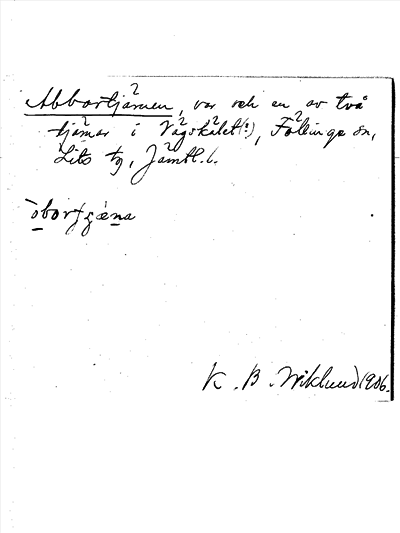 Abbortjärnen, var och en av två
tjärnar i Vägskälet(?), Föllinge sn,
Lits tg, Jämtl. l.
òbortjæ̀na
K. B. Wiklund 1906.